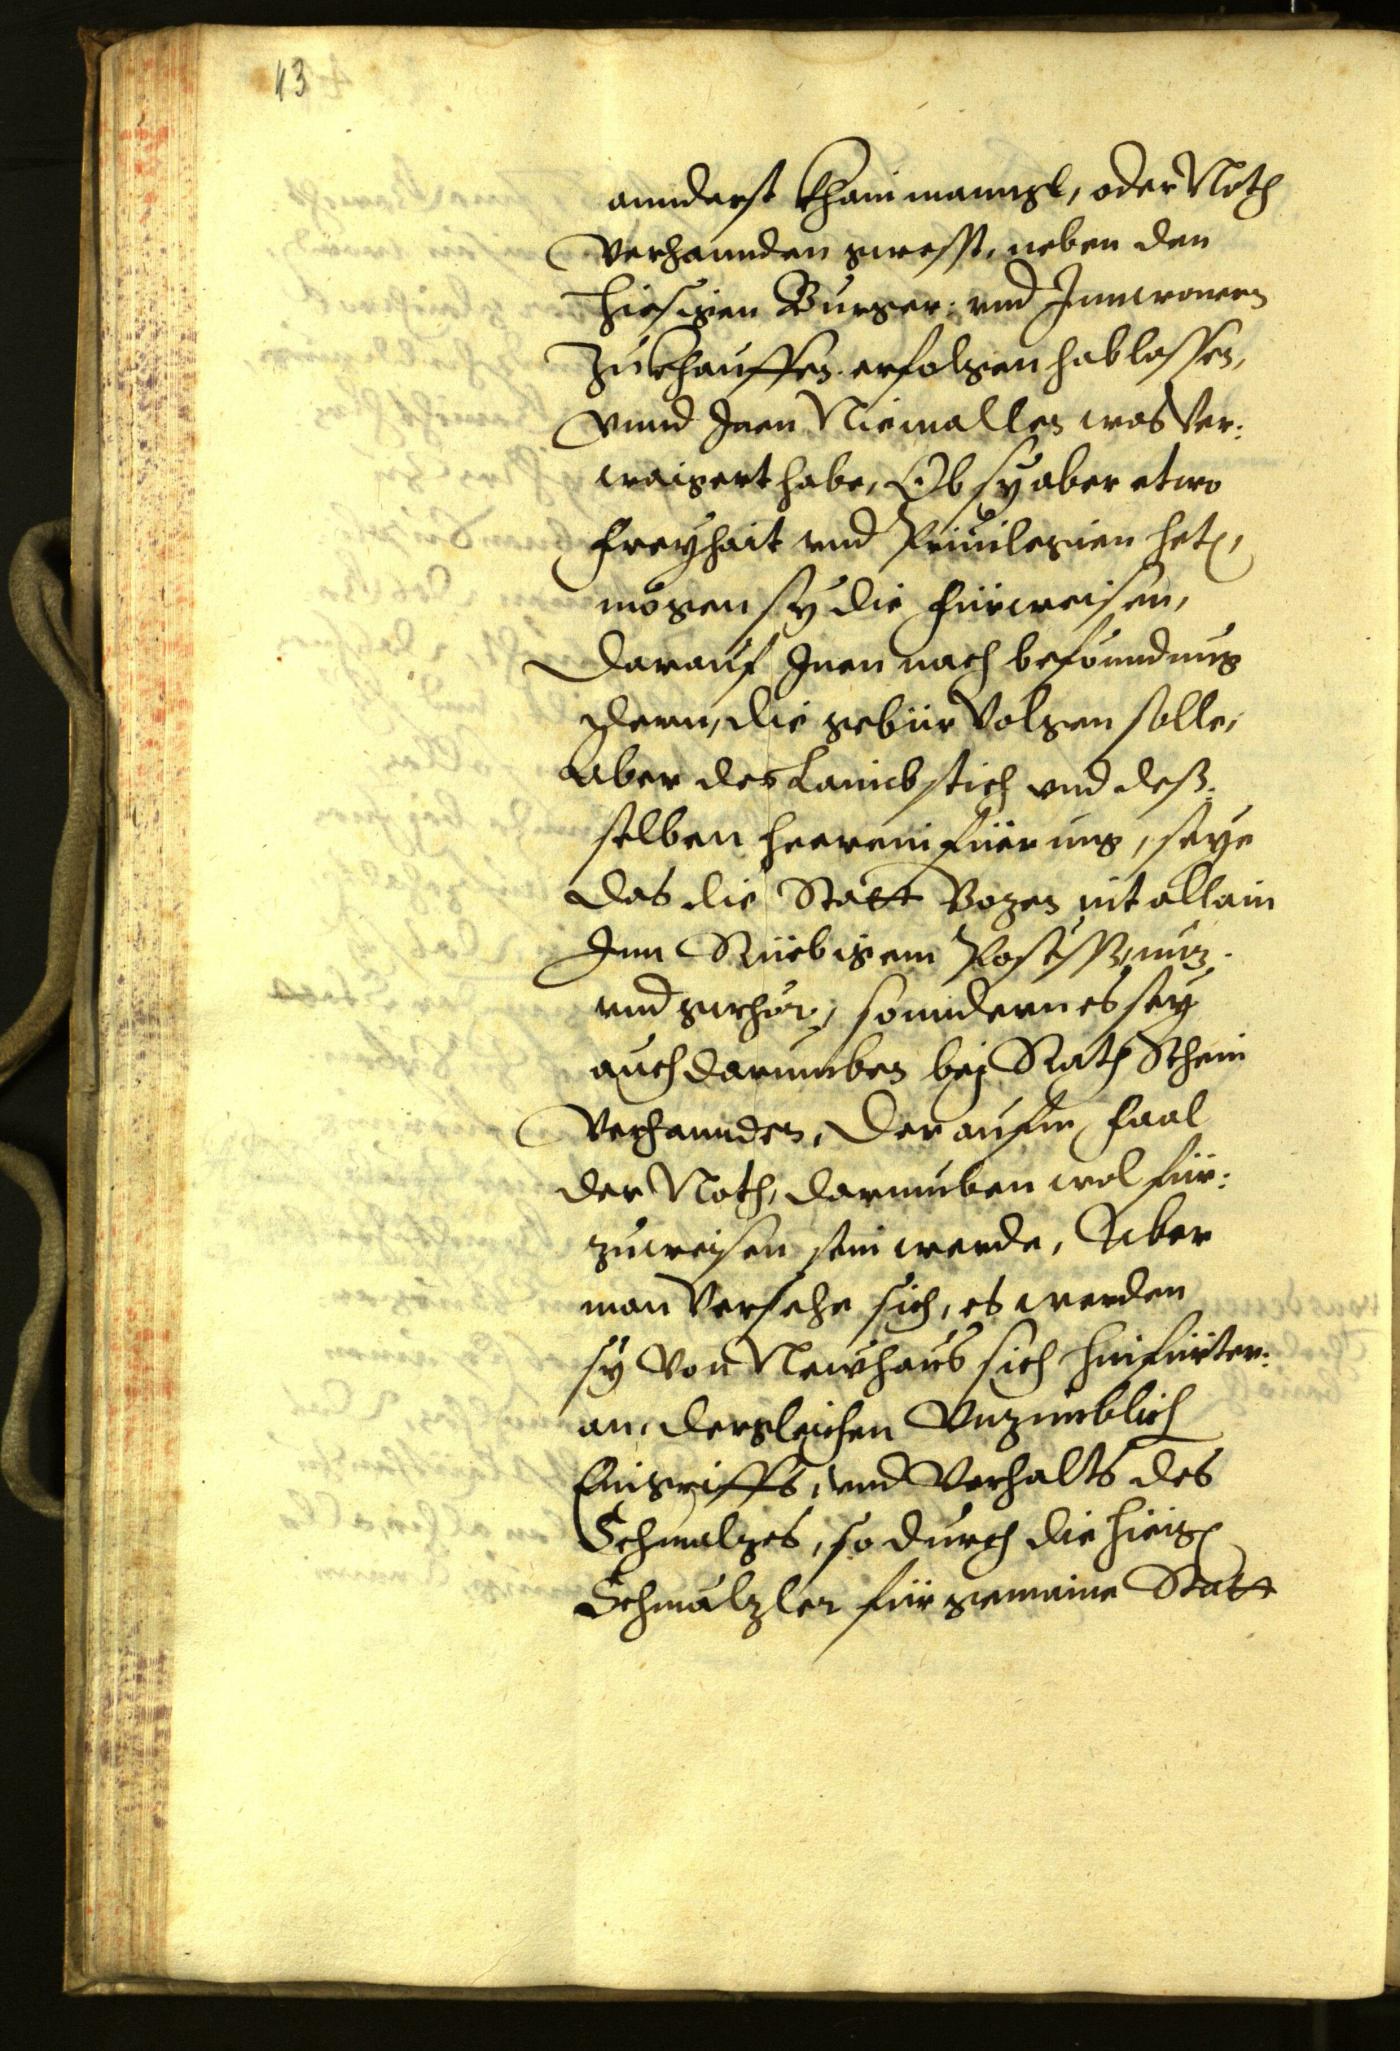 43
annderst khain manngl, oder Noth
verhannden gwesst, neben den
hiesigen Burger: vnd Innwonern
zukhauffen erfolgen hab lassen,
vnnd Inen Niemallen was ver:
waigert habe, Ob sy aber etwo
freyhait vnd Priuilegien het,
mögen sy die fürweisen,
darauf Inen nach befünndung
dern, die gebür volgen solle,
Aber des Lämbstich vnd deß:
selben hereinfüerung, seye
das die Statt Bozen nit allain
Inn Rüebigem Possess,
vnd gwhör, sonndern es sey
auch darumben bej Rath Schein
verhannden, der auf im faal
der Noth, darumben wol für:
zuweisen sein werde, Aber
man versehe sich, es werden
sy von Newhaus sich hinfürter:
an, dergleichen vnzimblich
Eingriffs, vnd Verhalts des
Schmalzes, so durch die hieig
Schmälzler für gemaine Statt